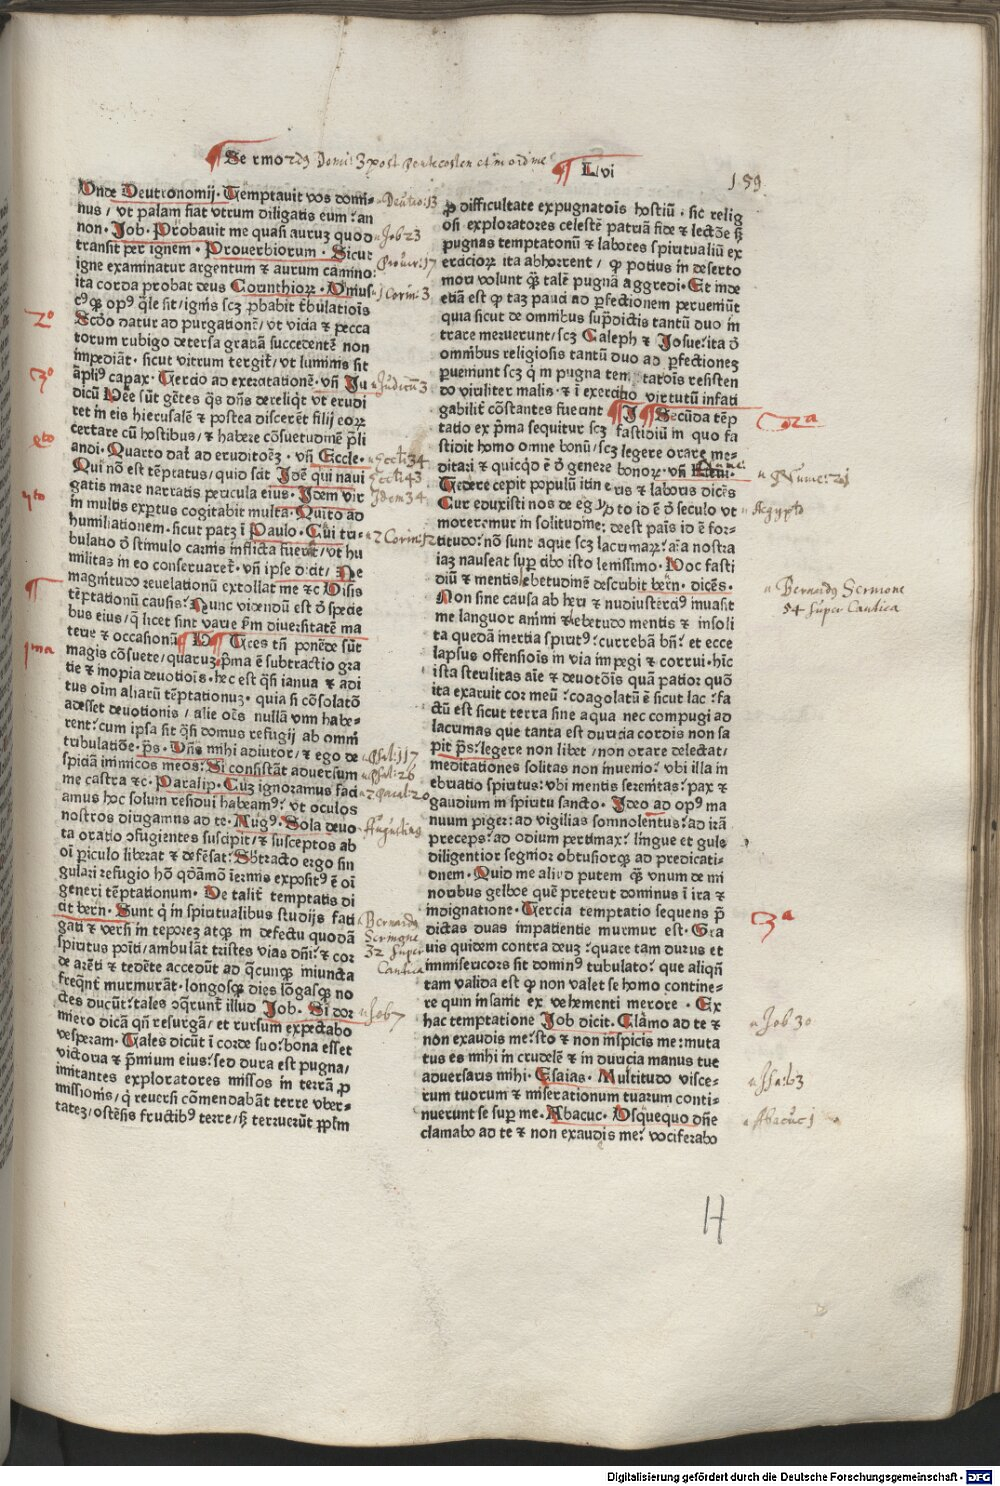 Sermo 2dus Domi: 3 post pentecosten et in ordine Lvi
159
Unde Deutronomij. Temptauit vos domi-
nus / vt palam fiat vtrum diligatis eum: an
non. Job. Probauit me quasi auruz quod
transit per ignem. Prouerbiorum. Sicut
igne examinatur argentum ⁊ aurum camino:
ita corda probat deus Corinthiorꝝ. Unius-
Scdo datur ad purgationē / vt vicia ⁊ pecca
torum rubigo detersa graciā succedentē non
impediāt. sicut vitrum tergit᷑ / vt luminis sit
āpliꝰ capax. Tercio ad exercitationē. vn̄ Ju
dicū
ret in eis hierusalē ⁊ postea discerēt filij eoꝝ
certare cū hostibus / ⁊ habere cōsuetudinē p̄li
andi. Quarto dat᷑ ad eruditōeꝫ. vn̄ Eccle.
Qui nō est tēptatus / quid scit Idē qui naui
gatis mare narratis pericula eius. Idem vir
in multis expertus cogitabit multa. Quito ad
humiliationem. sicut patꝫ i Paulo. Cui tri-
bulatio ⁊ stimulo carnis inflicta fuerūt / vt hu
militas in eo conseruaret᷑. vn̄ ipse dicit / Ne
magnitudo reuelationū extollat me ⁊c Visis
tēptationū causis: Nunc videndū est ō specie
bus eius / ꝙ licet sint varie ẜm diuersitatē ma
terie ⁊ occasionū Tres tn̄ ponēde sūt
magis cōsuete / quaruꝫ p̄ma ē subtractio gra
tie ⁊ inopia deuotiōis. hec est q̄si ianua ⁊ adi
tus oīm aliarū tēptationuꝫ. quia si cōsolatō
adesset deuotionis / alie oēs nullā vim habe-
rent: cum ipsa sit q̄si domus refugij ab omni
tribulatiōe. p̄s. Dn̄s mihi adiutor / ⁊ ego de
spiciā inimicos meos: Si consistāt aduersum
me castra ⁊c. Paralip. Cuꝫ ignoramus faci
amus hoc solum residui habeamꝰ: vt oculos
nostros dirigamus ad te. Augꝰ. Sola deuo
ta oratio ɔfugientes suscipit / ⁊ susceptos ab
oī periculo liberat ⁊ defēsat: Sbtracto ergo sin
gulari refugio hō quodāmō inermis expositꝰ ē oī
generi tēptationum. De talit̄ temptatis di
cit bern. Sunt q̄ in spiritualibus studijs fati
gati ⁊ versi in teporeꝫ atqꝫ in defectu quodā
spiritus pōiti / ambulāt tristes vias dn̄i: ⁊ cor
de arēti ⁊ tedēte accedūt ad q̄cunqꝫ iniuncta
freq̄nt̄ murmurāt. longosqꝫ dies lōgasqꝫ no
ctes ducūt: tales ɔq̄runt᷑ illud Job. Si dor
miero dicā qn̄ resurgā / et rursum expectabo
vesperam. Tales dicūt i corde suo: bona esset
victoria ⁊ p̄mium eius: sed dura est pugna /
imitantes exploratores missos in terrā ꝓ
missionis / q̄ reuersi cōmendabāt terre vber-
tateꝫ / ostēsis fructibꝰ terre / sꝫ terruerūt pp̄lm
ꝓ difficultate expugnatōis hostiū: sic relig
osi exploratores celestē patriā fide ⁊ lectōe sꝫ
pugnas temptatonū ⁊ labores spiritualiū ex
ercicioꝝ ita abhorrent / ꝙ potius in deserto
mori volunt qꝫ talē pugnā aggredi. Et inde
etiā est ꝙ taꝫ pauci ad perfectionem perueniūt
quia sicut de omnibus sup̄dictis tantū duo in
trare meruerunt / scꝫ Caleph ⁊ Josue: ita ō
omnibus religiosis tantū duo ad perfectioneꝫ
perueniunt scꝫ q̄ in pugna temptatōis resisten
do viriliter malis. ⁊ i exercitio virtutū infati
gabilit̄ cōstantes fuerint Secūda tēp
tatio ex p̄ma sequitur scꝫ fastidiū in quo fa
stidit homo omne bonū / scꝫ legere orare me-
ditari ⁊ quicqd ē ō genere bonoꝝ. vn̄ Nume.
Tedere cepit populū itineris ⁊ laboris dicēs
Cur eduxisti nos de egypto id ē ō seculo vt
moreremur in solitudine: deest panis id ē for-
titudo: nō sunt aque scꝫ lacrimaꝝ: aīa nostra
iaꝫ nauseat super cibo isto leuissimo. Hoc fasti
diū ⁊ mentis hebetudinē describit bern̄. dicēs.
Non sine causa ab heri ⁊ nudiusterciꝰ inuasit
me languor animi ⁊ hebetudo mentis ⁊ insoli
ta quedā inertia spiritꝰ: currebā bn̄: et ecce
lapsus offensiōis in via impegi ⁊ corrui. hīc
ista sterilitas aīe ⁊ deuotōis quā patior quō
ita exaruit cor meū: coagolatū ē sicut lac: fa
ctū est sicut terra sine aqua nec compugi ad
lacrimas que tanta est duricia cordis non sa
pit p̄s: legere non libet / non orare delectat /
meditationes solitas non inuenio: vbi illa in
ebriatio spiritus: vbi mentis serenitas: pax ⁊
gaudium in spiritu sancto. Ideo ad opꝰ ma
nuum piger: ad vigilias somnolentus: ad irā
preceps: ad odium pertinax: lingue et gule
diligentior segnior obtusiorqꝫ ad predicati-
onem. Quid me aliud putem qꝫ vnum de mi
noribus gelboe quē preterit dominus i ira ⁊
indignatione. Tercia temptatio sequens p̄
dictas duas impatientie murmur est. Gra
uis quidem contra deuꝫ: quare tam durus et
immisericors sit dominꝰ tribulato: que aliqn̄
tam valida est ꝙ non valet se homo contine-
re quin insanit ex vehementi merore. Ex
hac temptatione Job dicit. Clamo ad te ⁊
non exaudis me: sto ⁊ non inspicis me: muta
tus es mihi in crudelē ⁊ in duricia manus tue
aduersaris mihi. Esaias. Multitudo visce-
rum tuorum ⁊ miserationum tuarum conti-
nuerunt se super me. Abacuc. Usquequo dn̄e
clamabo ad te ⁊ non exaudis me: vociferabo
Deutro: 13
Job 23
Prouer: 17
1 Corin: 3
Judicū 3
Eccli 34
Eccli 43
Idem 34
2 Corin: 12
Psal: 117
Psal: 26
2 Paral: 20
Augustinus
Bernardus
Sermone
32 super
Cantica
Job 7
2º
3º
4to
5to
pma
2a
Nume: 21
Aegypto
Bernardus Sermone
54 super Cantica
3a
Job 30
Isa: 63
Abacuc 1
H
Digitalisierung gefördert durch die Deutsche Forschungsgemeinschaft - DFG